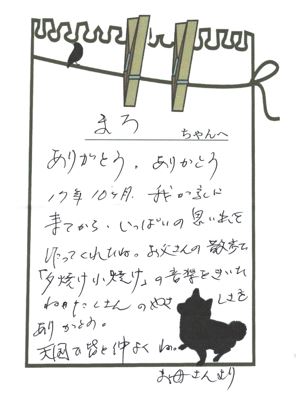 まろ ちゃんへ
ありがとう。ありがとう
17年10ヶ月。我が家に
来てから、いっぱいの思い出を
作ってくれたね。お父さんの散歩で
「夕焼け小焼け」の音楽をきいた
ね。たくさんのやさしさを
ありがとう。
天国で皆と仲よくね。
お母さんより